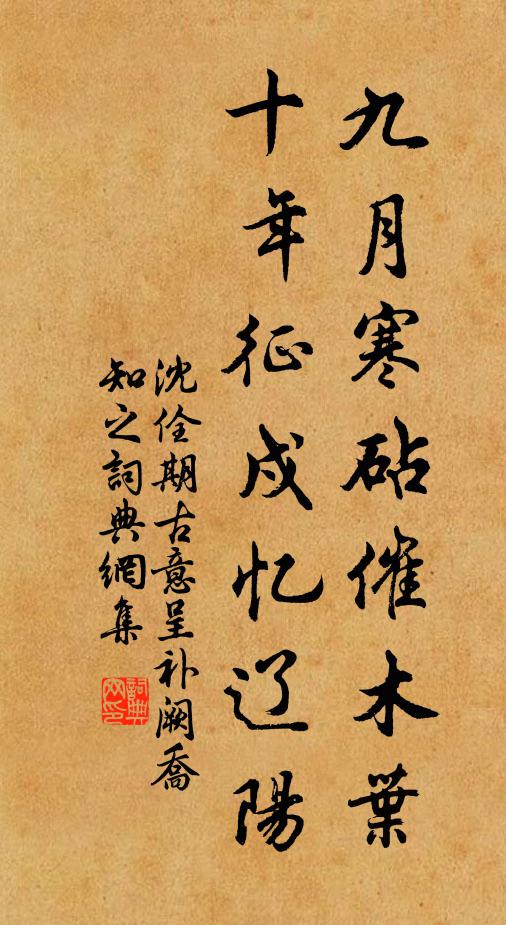 九月寒砧催木葉
十年征戍忆辽陽
沈佺期古意呈补阙喬
知之詞典網集
詞典網印